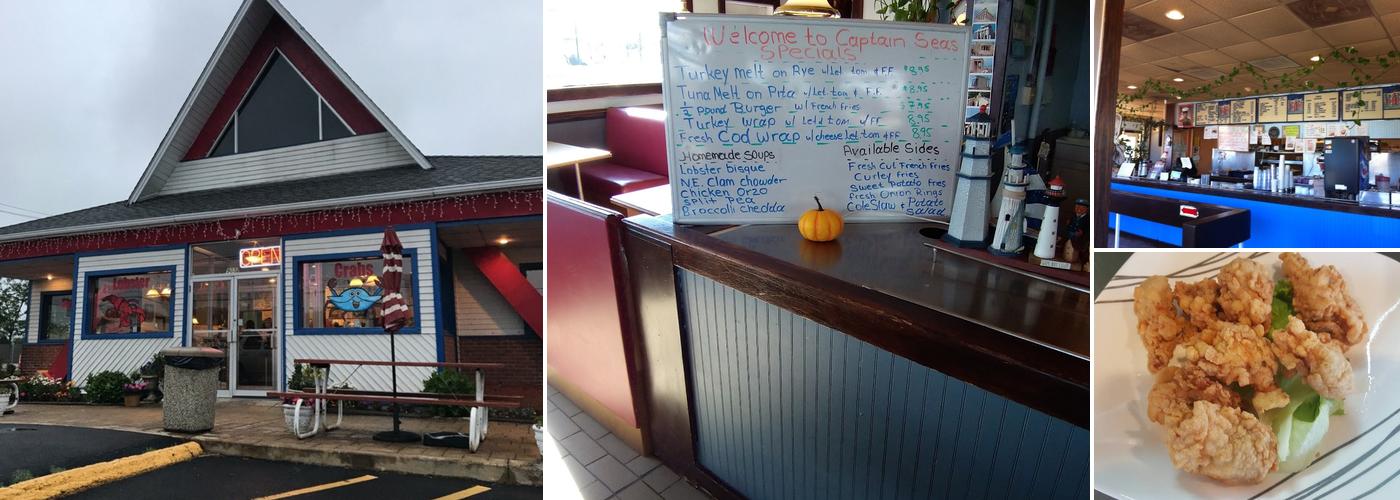 OPEN
Lobster
Crabs
Welcome to Captain Seas
Specials
Turkey melt on Rye w/Let tom & FF $8.95
Tuna Melt on Pita w/Let tom & F.F. $8.95
½ Pound Burger w/ French Fries $7.95
Turkey wrap w/ Let & tom w/FF 8.95
Fresh Cod wrap w/cheese let tom & FF 8.95
Homemade Soups
Lobster bisque
N.E. Clam chowder
Chicken Orzo
Split Pea
Broccoli chedda
Available Sides
Fresh Cut French Fries
Curley fries
Sweet Potato fries
Fresh Onion Rings
Cole Slaw & Potato
Salad